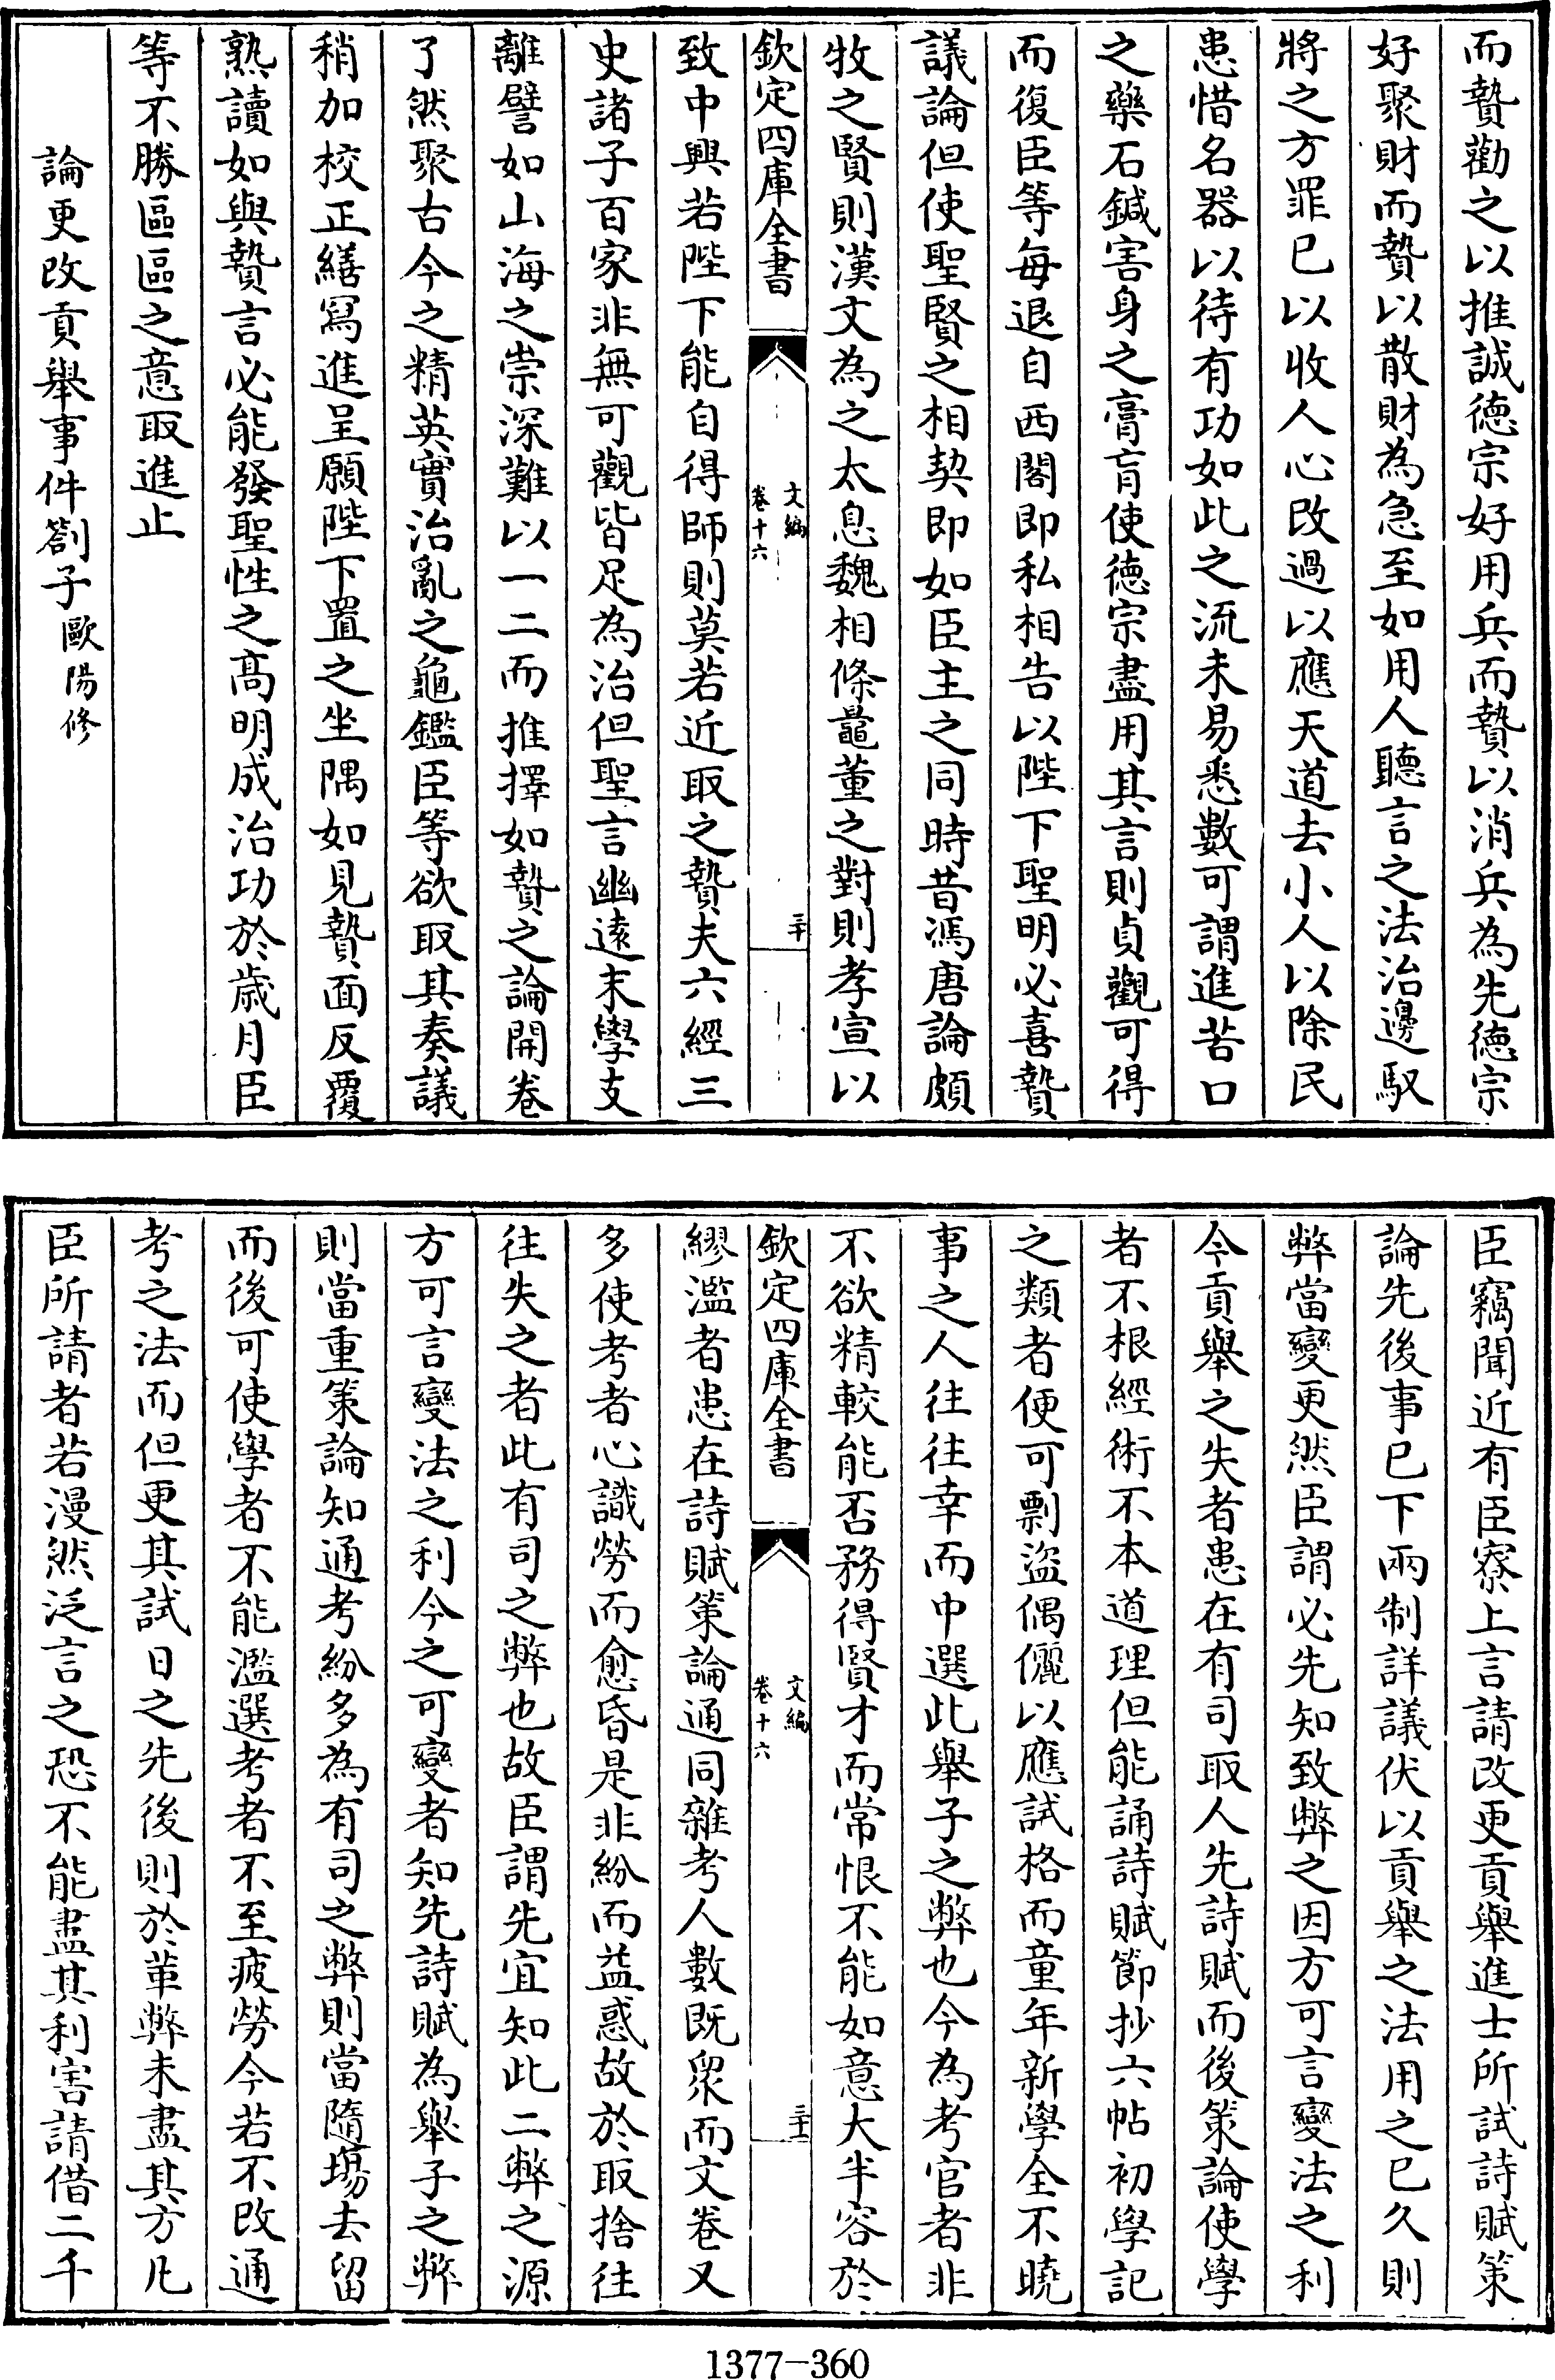 而贄勸之以推誠德宗好用兵而贄以消兵為先德宗
好聚財而贄以散財為急至如用人聽言之法治邊馭
將之方罪已以收人心改過以應天道去小人以除民
患惜名器以待有功如此之流未易悉數可謂進苦口
之藥石鍼害身之膏肓使德宗盡用其言則貞觀可得
而復臣等每退自西閣即私相告以陛下聖明必喜贄
議論但使聖賢之相契即如臣主之同時昔馮唐論頗
牧之賢則漢文為之太息魏相條鼂董之對則孝宣以
欽定四庫全書
文編
卷十六
三十
致中興若陛下能自得師則莫若近取之贄夫六經三
史諸子百家非無可觀皆足為治但聖言幽遠末學支
離譬如山海之崇深難以一二而推擇如贄之論開卷
了然聚古今之精英實治亂之龜鑑臣等欲取其奏議
稍加校正繕寫進呈願陛下置之坐隅如見贄面反覆
熟讀如與贄言必能發聖性之高明成治功於歲月臣
等不勝區區之意取進止
論更改貢舉事件劄子歐陽修
臣竊聞近有臣寮上言請改更貢舉進士所試詩賦策
論先後事已下兩制詳議伏以貢舉之法用之已久則
弊當變更然臣謂必先知致弊之因方可言變法之利
今貢舉之失者患在有司取人先詩賦而後策論使學
者不根經術不本道理但能誦詩賦節抄六帖初學記
之類者便可剽盜偶儷以應試格而童年新學全不曉
事之人往往幸而中選此舉子之弊也今為考官者非
不欲精較能否務得賢才而常恨不能如意大半容於
欽定四庫全書
文編
卷十六
三十一
繆濫者患在詩賦策論通同雜考人數既衆而文卷又
多使考者心識勞而愈昏是非紛而益惑故於取捨往
往失之者此有司之弊也故臣謂先宜知此二弊之源
方可言變法之利今之可變者知先詩賦為舉子之弊
則當重策論知通考紛多為有司之弊則當隨塲去留
而後可使學者不能濫選考者不至疲勞今若不改通
考之法而但更其試日之先後則於革弊未盡其方凡
臣所請者若漫然泛言之恐不能盡其利害請借二千
1377-360